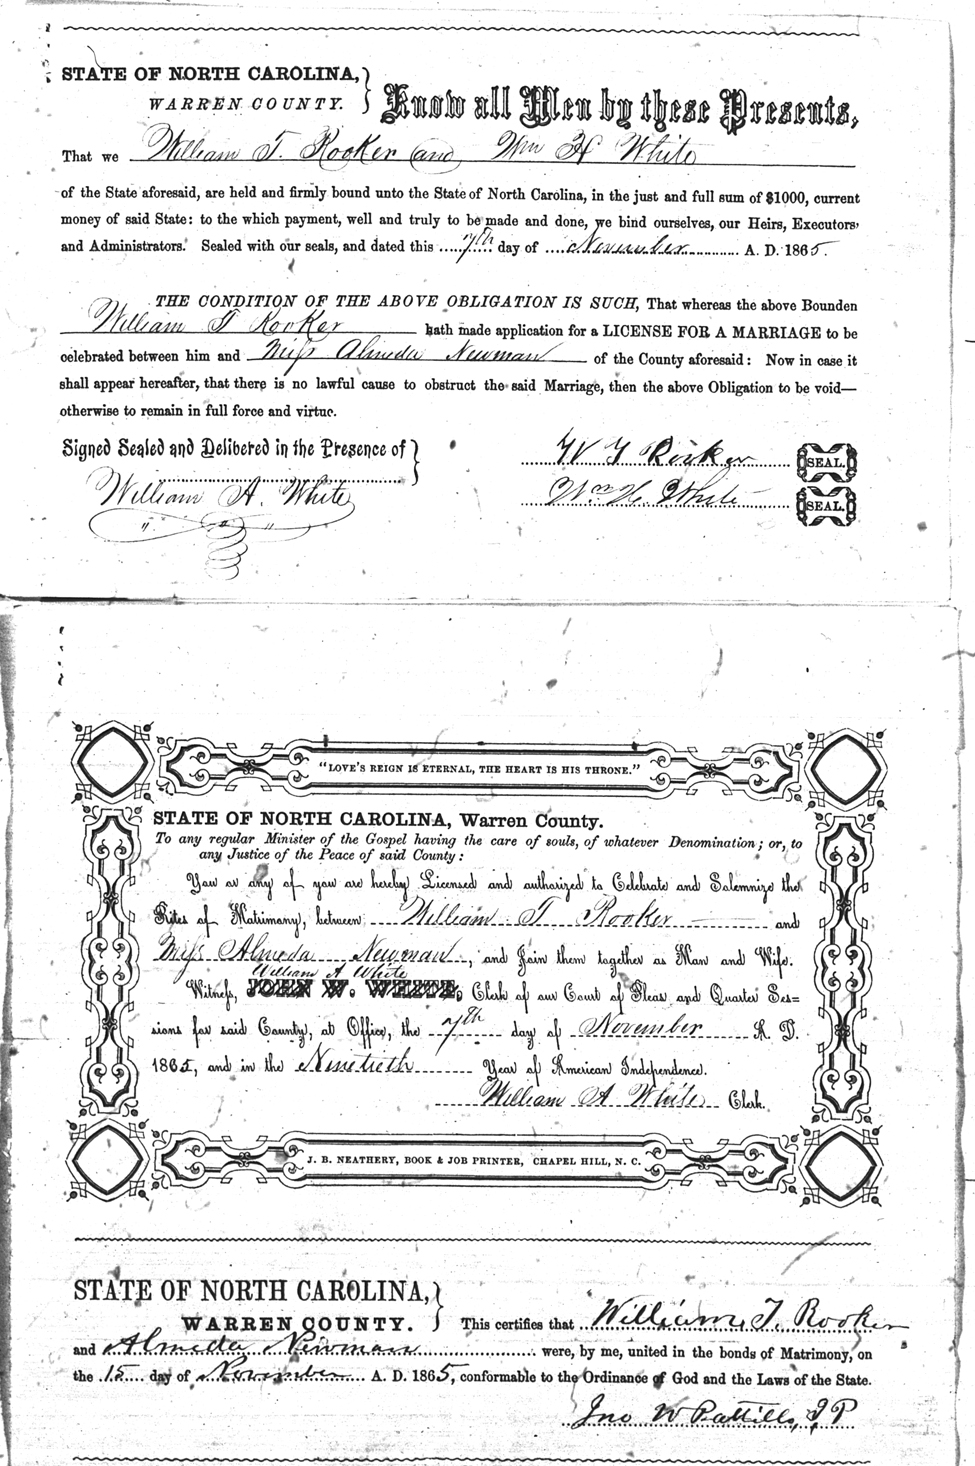 STATE OF NORTH CAROLINA,
WARREN COUNTY.
Know all Men by these Presents,
That we William T. Rooker and Wm H White
of the State aforesaid, are held and firmly bound unto the State of North Carolina, in the just and full sum of $1000, current
money of said State: to the which payment, well and truly to be made and done, we bind ourselves, our Heirs, Executors
and Administrators. Sealed with our seals, and dated this 7th day of November A. D. 1865.
THE CONDITION OF THE ABOVE OBLIGATION IS SUCH, That whereas the above Bounden
William T Rooker hath made application for a LICENSE FOR A MARRIAGE to be
celebrated between him and Miss Almeda Newman of the County aforesaid: Now in case it
shall appear hereafter, that there is no lawful cause to obstruct the said Marriage, then the above Obligation to be void—
otherwise to remain in full force and virtue.
Signed Sealed and Delibered in the Presence of
W T Rooker SEAL.
William A. White
Wm H. White SEAL.
"LOVE'S REIGN IS ETERNAL, THE HEART IS HIS THRONE."
STATE OF NORTH CAROLINA, Warren County.
To any regular Minister of the Gospel having the care of souls, of whatever Denomination; or, to
any Justice of the Peace of said County:
You or any of you are hereby Licensed and authorized to Celebrate and Solemnize the
Rites of Matrimony, between William T Rooker and
Miss Almeda Newman, and Join them together as Man and Wife.
William A White
Witness, JOHN W. WHITE, Clerk of our Court of Pleas and Quarter Ses=
sions for said County, at Office, the 7th day of November A. D.
1865, and in the Ninetieth Year of American Independence.
William A White Clerk.
J. B. NEATHERY, BOOK & JOB PRINTER, CHAPEL HILL, N. C.
STATE OF NORTH CAROLINA,
WARREN COUNTY.
This certifies that William T. Rooker
and Almeda Newman were, by me, united in the bonds of Matrimony, on
the 15 day of November A. D. 1865, conformable to the Ordinance of God and the Laws of the State.
Jno W Pattillo, J P